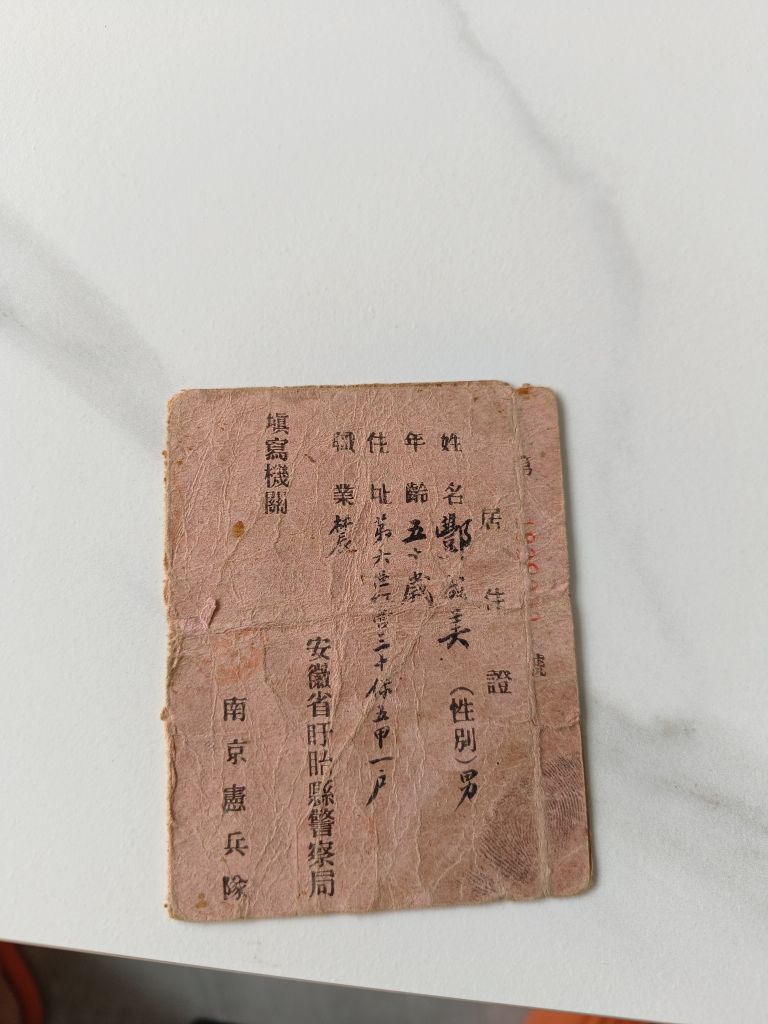 第
號
居住證
姓名酆
美（性別）男
年齡五十歲
住址第六區
營三十保五甲一户
職業
安徽省盱眙縣警察局
填寫機關
南京憲兵隊